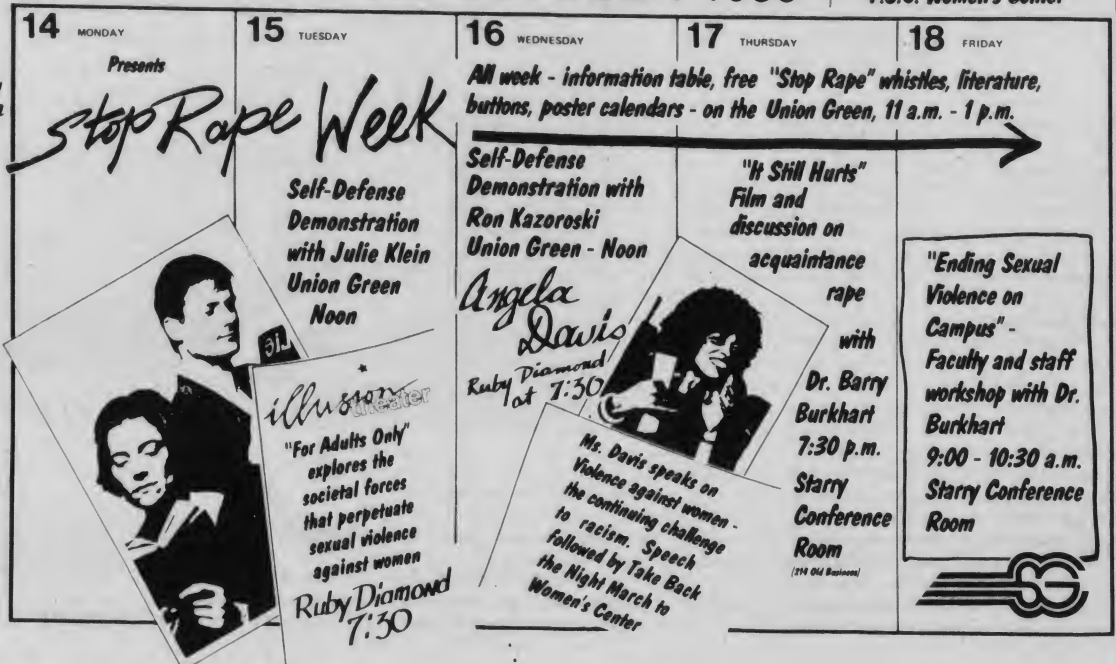 14 MONDAY
Presents
Stop Rape Week
15 TUESDAY
Self-Defense
Demonstration
with Julie Klein
Union Green
Noon
illusion
theater
"For Adults Only"
explores the
societal forces
that perpetuate
sexual violence
against women
Ruby Diamond
7:30
16 WEDNESDAY
All week - information table, free "Stop Rape" whistles, literature,
buttons, poster calendars - on the Union Green, 11 a.m. - 1 p.m.
Self-Defense
Demonstration with
Ron Kazoroski
Union Green - Noon
Angela
Davis
Ruby Diamond
at 7:30
Ms. Davis speaks on
Violence against women -
the continuing challenge
to racism. Speech
followed by Take Back
the Night March to
Women's Center
17 THURSDAY
"It Still Hurts"
Film and
discussion on
acquaintance
rape
with
Dr. Barry
Burkhart
7:30 p.m.
Starry
Conference
Room
(214 Old Business)
18 FRIDAY
"Ending Sexual
Violence on
Campus" -
Faculty and staff
workshop with Dr.
Burkhart
9:00 - 10:30 a.m.
Starry Conference
Room
SG